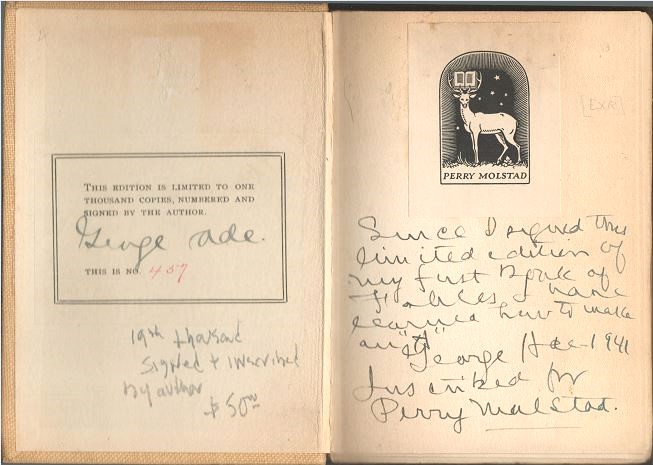 THIS EDITION IS LIMITED TO ONE
THOUSAND COPIES, NUMBERED AND
SIGNED BY THE AUTHOR.
George Ade.
THIS IS NO. 457
19th thousand
signed + inscribed
by author
$50.00
PERRY MOLSTAD
[EXR]
Since I signed this
limited edition of
my first Book of
Fables I have
learned how to make
an "A"
George Ade - 1941
Inscribed for
Perry Malstad.